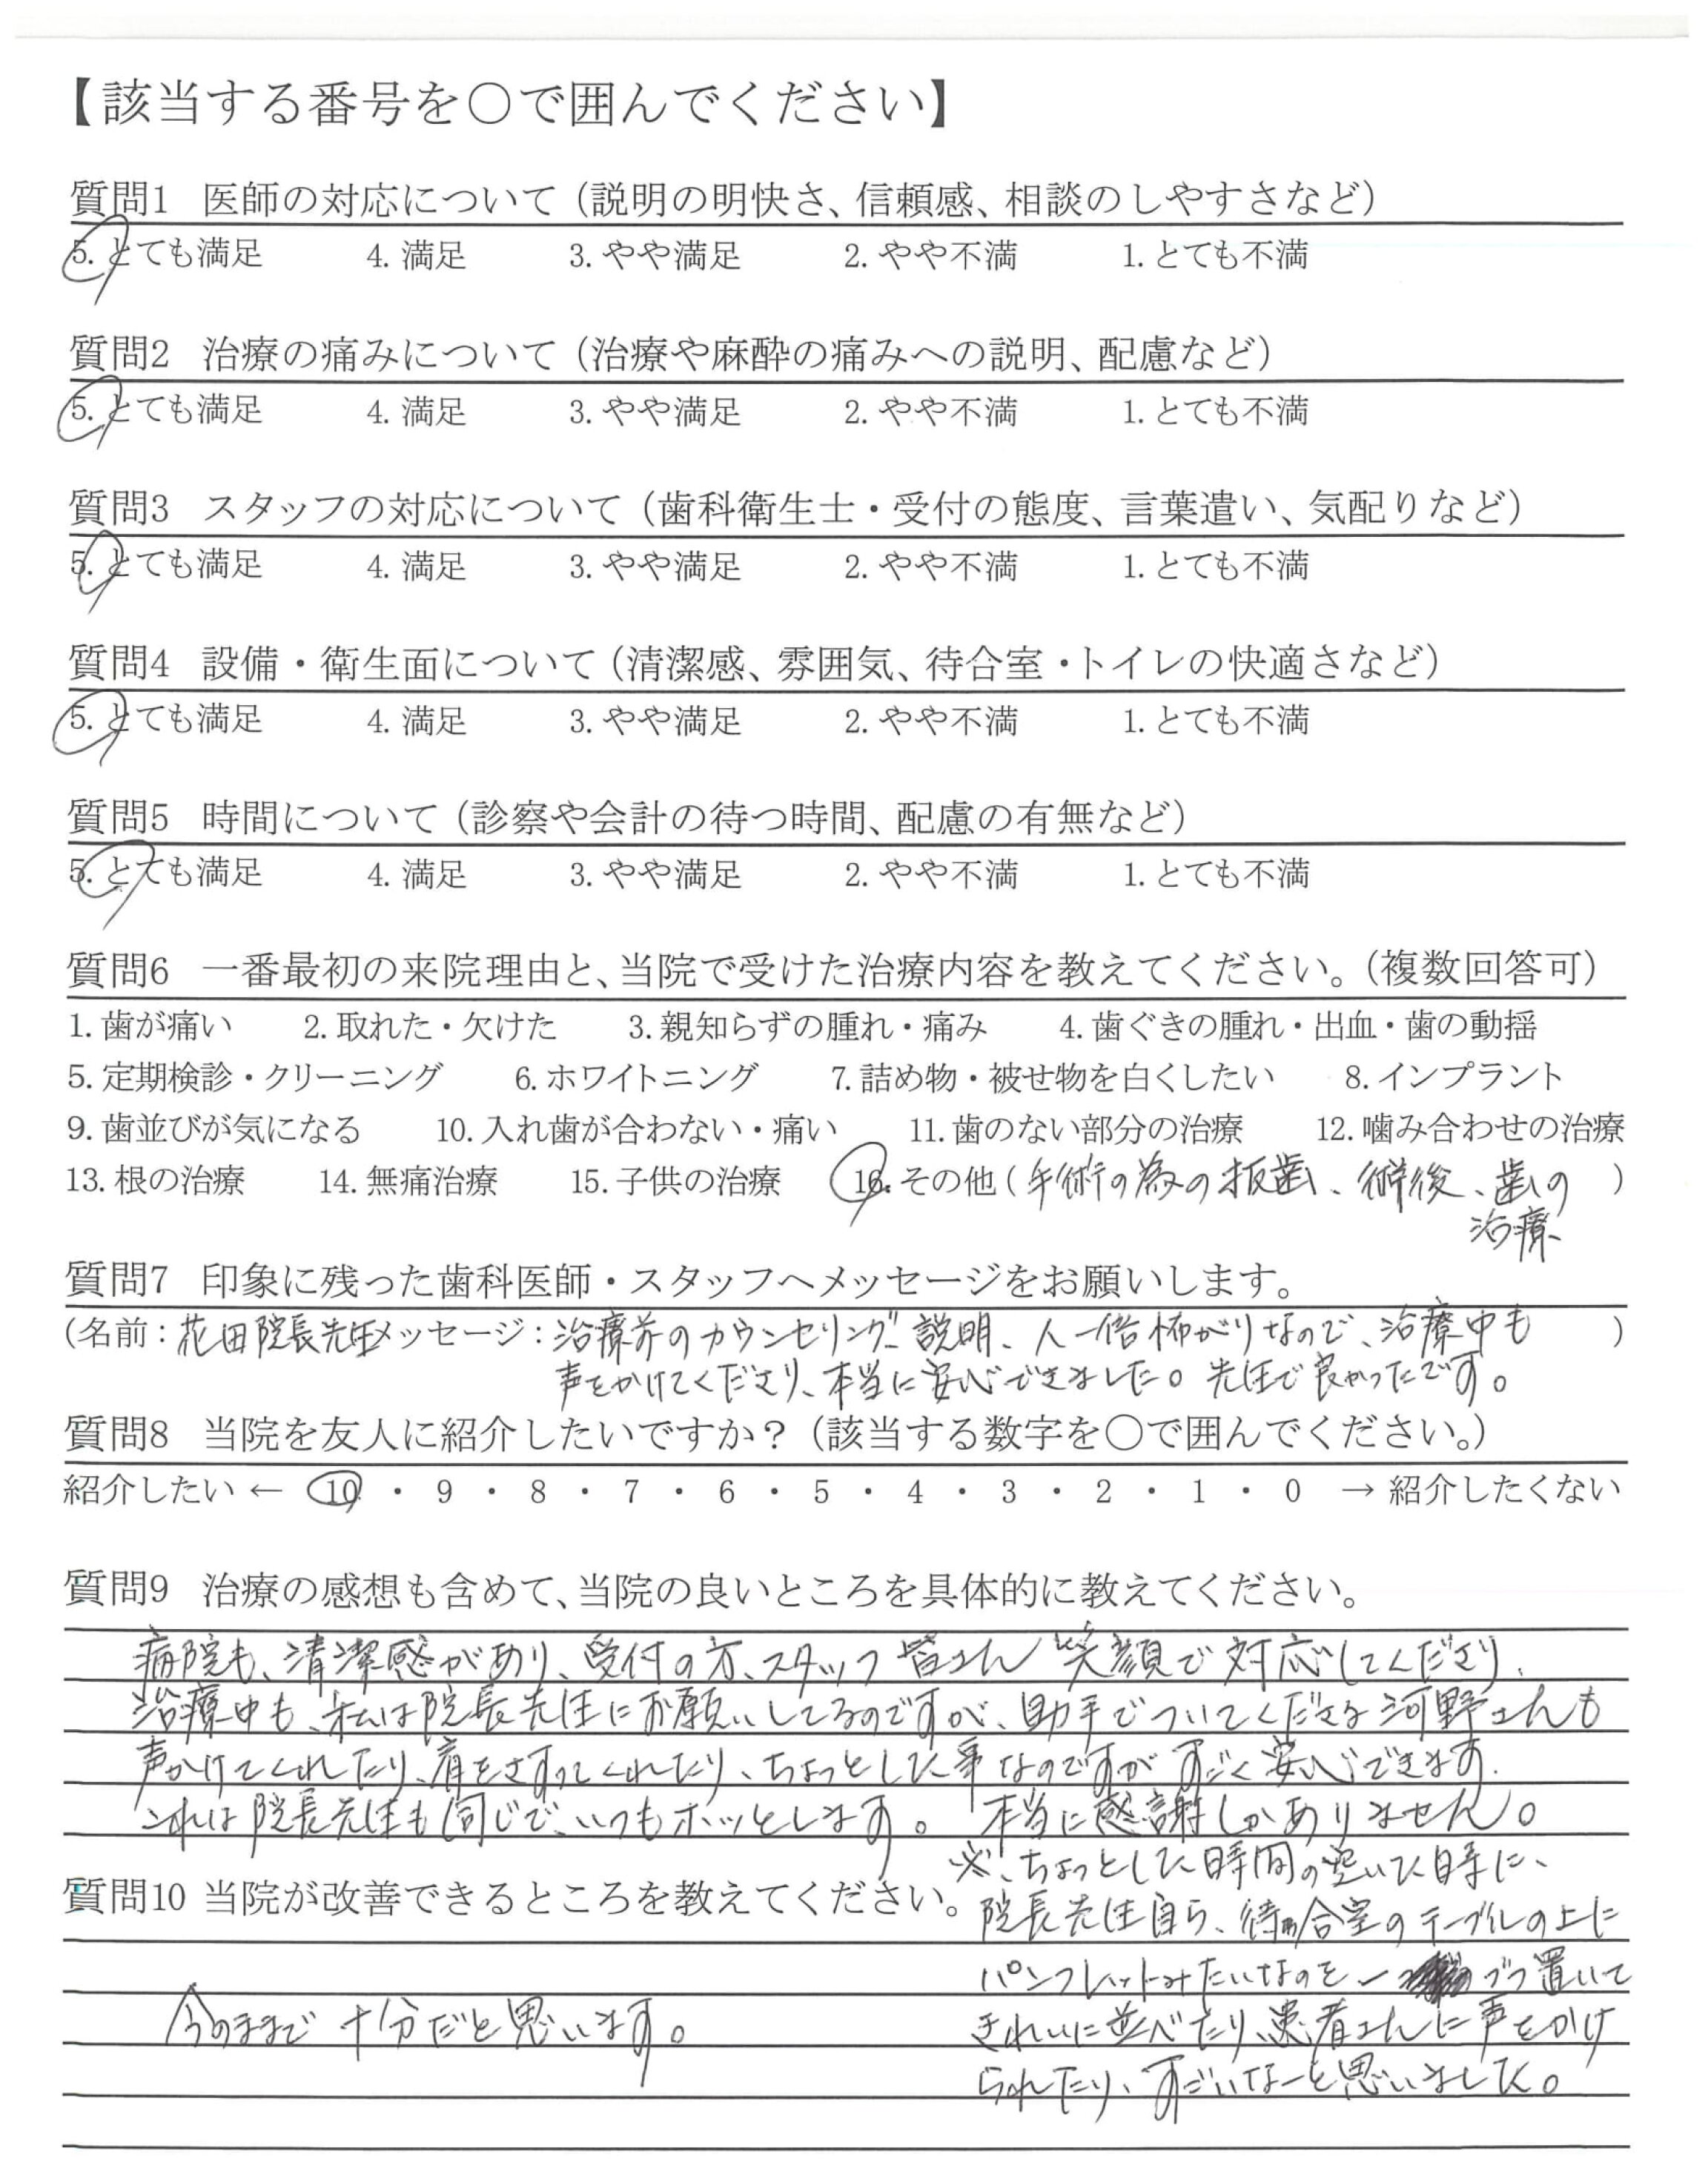 【該当する番号を○で囲んでください】
質問1 医師の対応について（説明の明快さ、信頼感、相談のしやすさなど）
5. とても満足 4. 満足 3. やや満足 2. やや不満 1. とても不満
質問2 治療の痛みについて（治療や麻酔の痛みへの説明、配慮など）
5. とても満足 4. 満足 3. やや満足 2. やや不満 1. とても不満
質問3 スタッフの対応について（歯科衛生士・受付の態度、言葉遣い、気配りなど）
5. とても満足 4. 満足 3. やや満足 2. やや不満 1. とても不満
質問4 設備・衛生面について（清潔感、雰囲気、待合室・トイレの快適さなど）
5. とても満足 4. 満足 3. やや満足 2. やや不満 1. とても不満
質問5 時間について（診察や会計の待つ時間、配慮の有無など）
5. とても満足 4. 満足 3. やや満足 2. やや不満 1. とても不満
質問6 一番最初の来院理由と、当院で受けた治療内容を教えてください。（複数回答可）
1. 歯が痛い 2. 取れた・欠けた 3. 親知らずの腫れ・痛み 4. 歯ぐきの腫れ・出血・歯の動揺
5. 定期検診・クリーニング 6. ホワイトニング 7. 詰め物・被せ物を白くしたい 8. インプラント
9. 歯並びが気になる 10. 入れ歯が合わない・痛い 11. 歯のない部分の治療 12. 噛み合わせの治療
13. 根の治療 14. 無痛治療 15. 子供の治療 16. その他（手術の為の抜歯、術後、歯の）
治療
質問7 印象に残った歯科医師・スタッフへメッセージをお願いします。
（名前：花田院長先生メッセージ：治療前のカウンセリング、説明、人一倍怖がりなので、治療中も）
声をかけてくださり、本当に安心できました。先生で良かったです。
質問8 当院を友人に紹介したいですか？（該当する数字を○で囲んでください。）
紹介したい ← 10 ・ 9 ・ 8 ・ 7 ・ 6 ・ 5 ・ 4 ・ 3 ・ 2 ・ 1 ・ 0 → 紹介したくない
質問9 治療の感想も含めて、当院の良いところを具体的に教えてください。
病院も、清潔感があり、受付の方、スタッフ皆さん笑顔で対応してくださり、
治療中も、私は院長先生にお願いしてるのですが、助手でついてくださる河野さんも
声かけてくれたり、肩をさすってくれたり、ちょっとした事なのですがすごく安心できます。
これは院長先生も同じで、いつもホッとします。本当に感謝しかありません。
※、ちょっとした時間の空いた時に、
質問10 当院が改善できるところを教えてください。
院長先生自ら、待合室のテーブルの上に
パンフレットみたいなのを一つづつ置いて
今のままで十分だと思います。
きれいに並べたり、患者さんに声をかけ
られたり、すごいなーと思いました。